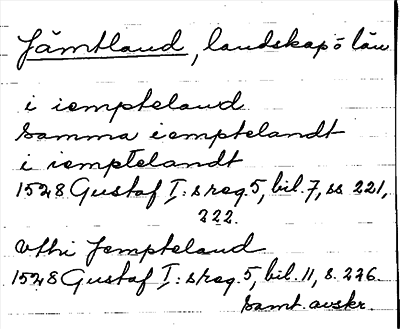 Jämtland, landskap o län
i iempteland
Samma iemptelandt
i iemptelandt
1528 Gustaf I:s reg. 5, bil. 7, ss 221,
222.
vthi Jempteland
1528 Gustaf I:s reg. 5, bil. 11, s. 226.
Samt. avskr.